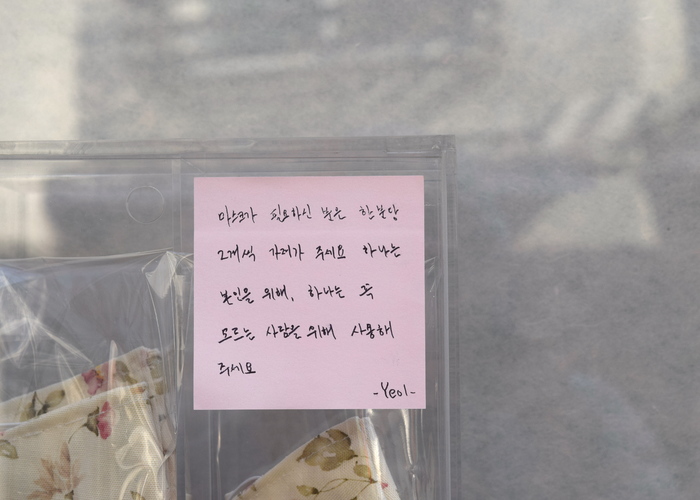 마스크가 필요하신 분은 한분당
2개씩 가져가 주세요 하나는
본인을 위해, 하나는 꼭
모르는 사람을 위해 사용해
주세요
-Yeol-